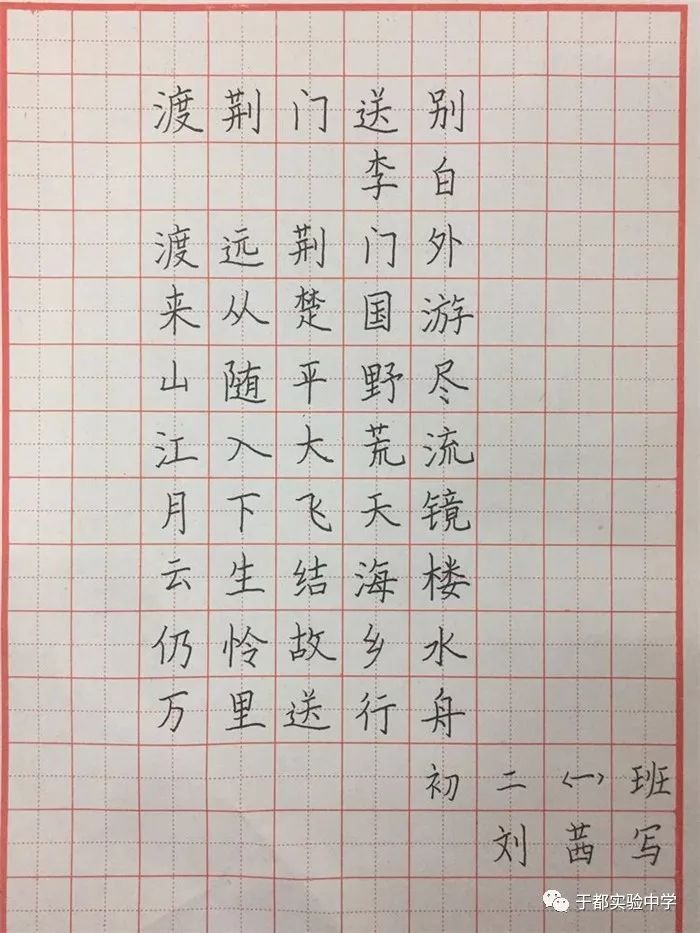 渡荆门送别
李白
渡远荆门外
来从楚国游
山随平野尽
江入大荒流
月下飞天镜
云生结海楼
仍怜故乡水
万里送行舟
初二(一)班
刘茜写
于都实验中学